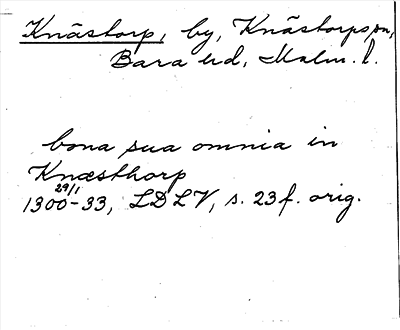 Knästorp, by, Knästorps sn,
Bara hd, Malm. l.
bona sua omnia in
Knæsthorp
29/1
1300-33, LDLV, s. 23 f. orig.